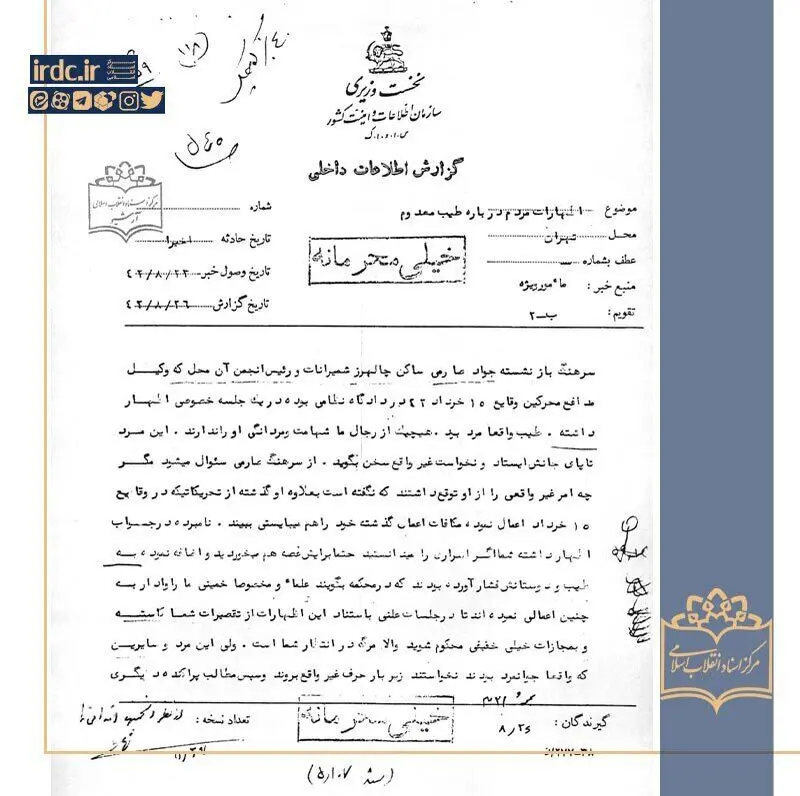 irdc.ir
(۱۱۸)
نخست وزیری
سازمان اطلاعات و امنیت کشور
س.ا.و.ا.ک
گزارش اطلاعات داخلی
مرکز اسناد انقلاب اسلامی
آرشیو
موضوع اظهارات مردم درباره طیب معدوم
محل تهران
عطف بشماره
منبع خبر : مأمور ویژه
تقویم : ب-۲
شماره
تاریخ حادثه اخیرا
تاریخ وصول خبر ۴۲/۸/۲۳
تاریخ گزارش ۴۲/۸/۲۶
خیلی محرمانه
سرهنگ باز نشسته جواد صارمی ساکن چالهرز شمیرانات و رئیس انجمن آن محل که وکیل
مدافع محرکین وقایع ۱۵ خرداد ۴۲ در دادگاه نظامی بوده در یک جلسه خصوصی اظهار
داشته . طیب واقعا مرد بود . هیچیک از رجال ما شهامت ومردانگی او راندارند . این مرد
تا پای جانش ایستاد و نخواست غیر واقع سخن بگوید . از سرهنگ صارمی سئوال میشود مگر
چه امر غیر واقعی را از او توقع داشتند که نگفته است بعلاوه او گذشته از تحریکاتیکه در وقایع
۱۵ خرداد اعمال نموده مکافات اعمال گذشته خود را هم میبایستی ببیند . نامبرده در جواب
اظهار داشته شما اگر اسراری را میدانستید حتما برایش غصه هم میخوردید و اضافه نموده به
طیب و دوستانش فشار آورده بودند که در محکمه بگویند علماء و مخصوصا خمینی ما را وادار به
چنین اعمالی نموده اند تا در جلسات علنی باستناد این اظهارات از تقصیرات شما کاسته
و بمجازات خیلی خفیفی محکوم شوید والا مرگ در انتظار شما است . ولی این مرد و سایرین
که واقعا جوانمرد بودند نخواستند زیر بار حرف غیر واقع بروند وسپس مطالب پراکنده دیگری
گیرندگان :
۸/۲۶
خیلی محرمانه
تعداد نسخه :
(سند ۵/۱۰۷)
مرکز اسناد انقلاب اسلامی